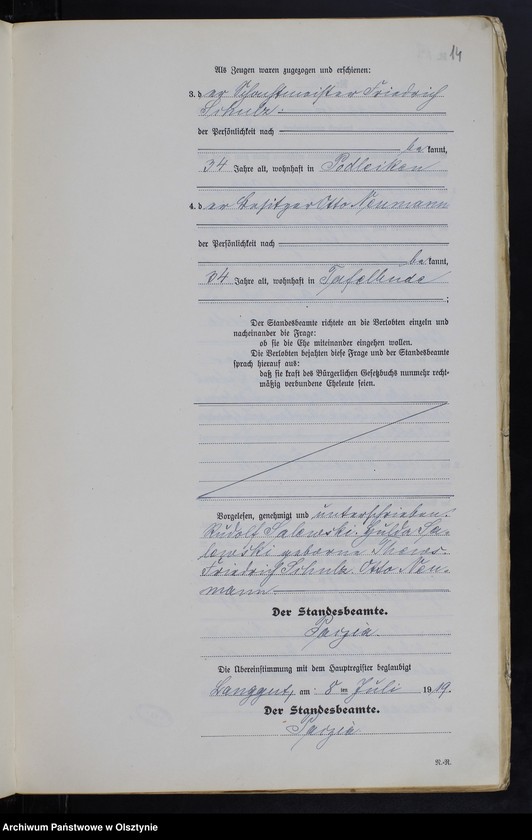 14
Als Zeugen waren zugezogen und erschienen:
3. d er Schachtmeister Friedrich
Schulz.
der Persönlichkeit nach
be kannt,
34 Jahre alt, wohnhaft in Podleiken
4. d er Besitzer Otto Neumann
der Persönlichkeit nach
be kannt,
34 Jahre alt, wohnhaft in Tafelbude
;
Der Standesbeamte richtete an die Verlobten einzeln und
nacheinander die Frage:
ob sie die Ehe miteinander eingehen wollen.
Die Verlobten bejahten diese Frage und der Standesbeamte
sprach hierauf aus:
daß sie kraft des Bürgerlichen Gesetzbuchs nunmehr recht-
mäßig verbundene Eheleute seien.
Vorgelesen, genehmigt und unterschrieben.
Rudolf Salewski. Hulda Sa-
lewski geborne
Friedrich Schulz. Otto Neu-
mann
Der Standesbeamte.
Die Übereinstimmung mit dem Hauptregister beglaubigt
Langgut, am 8 ten Juli 1919.
Der Standesbeamte.
N.-R.
Archiwum Państwowe w Olsztynie